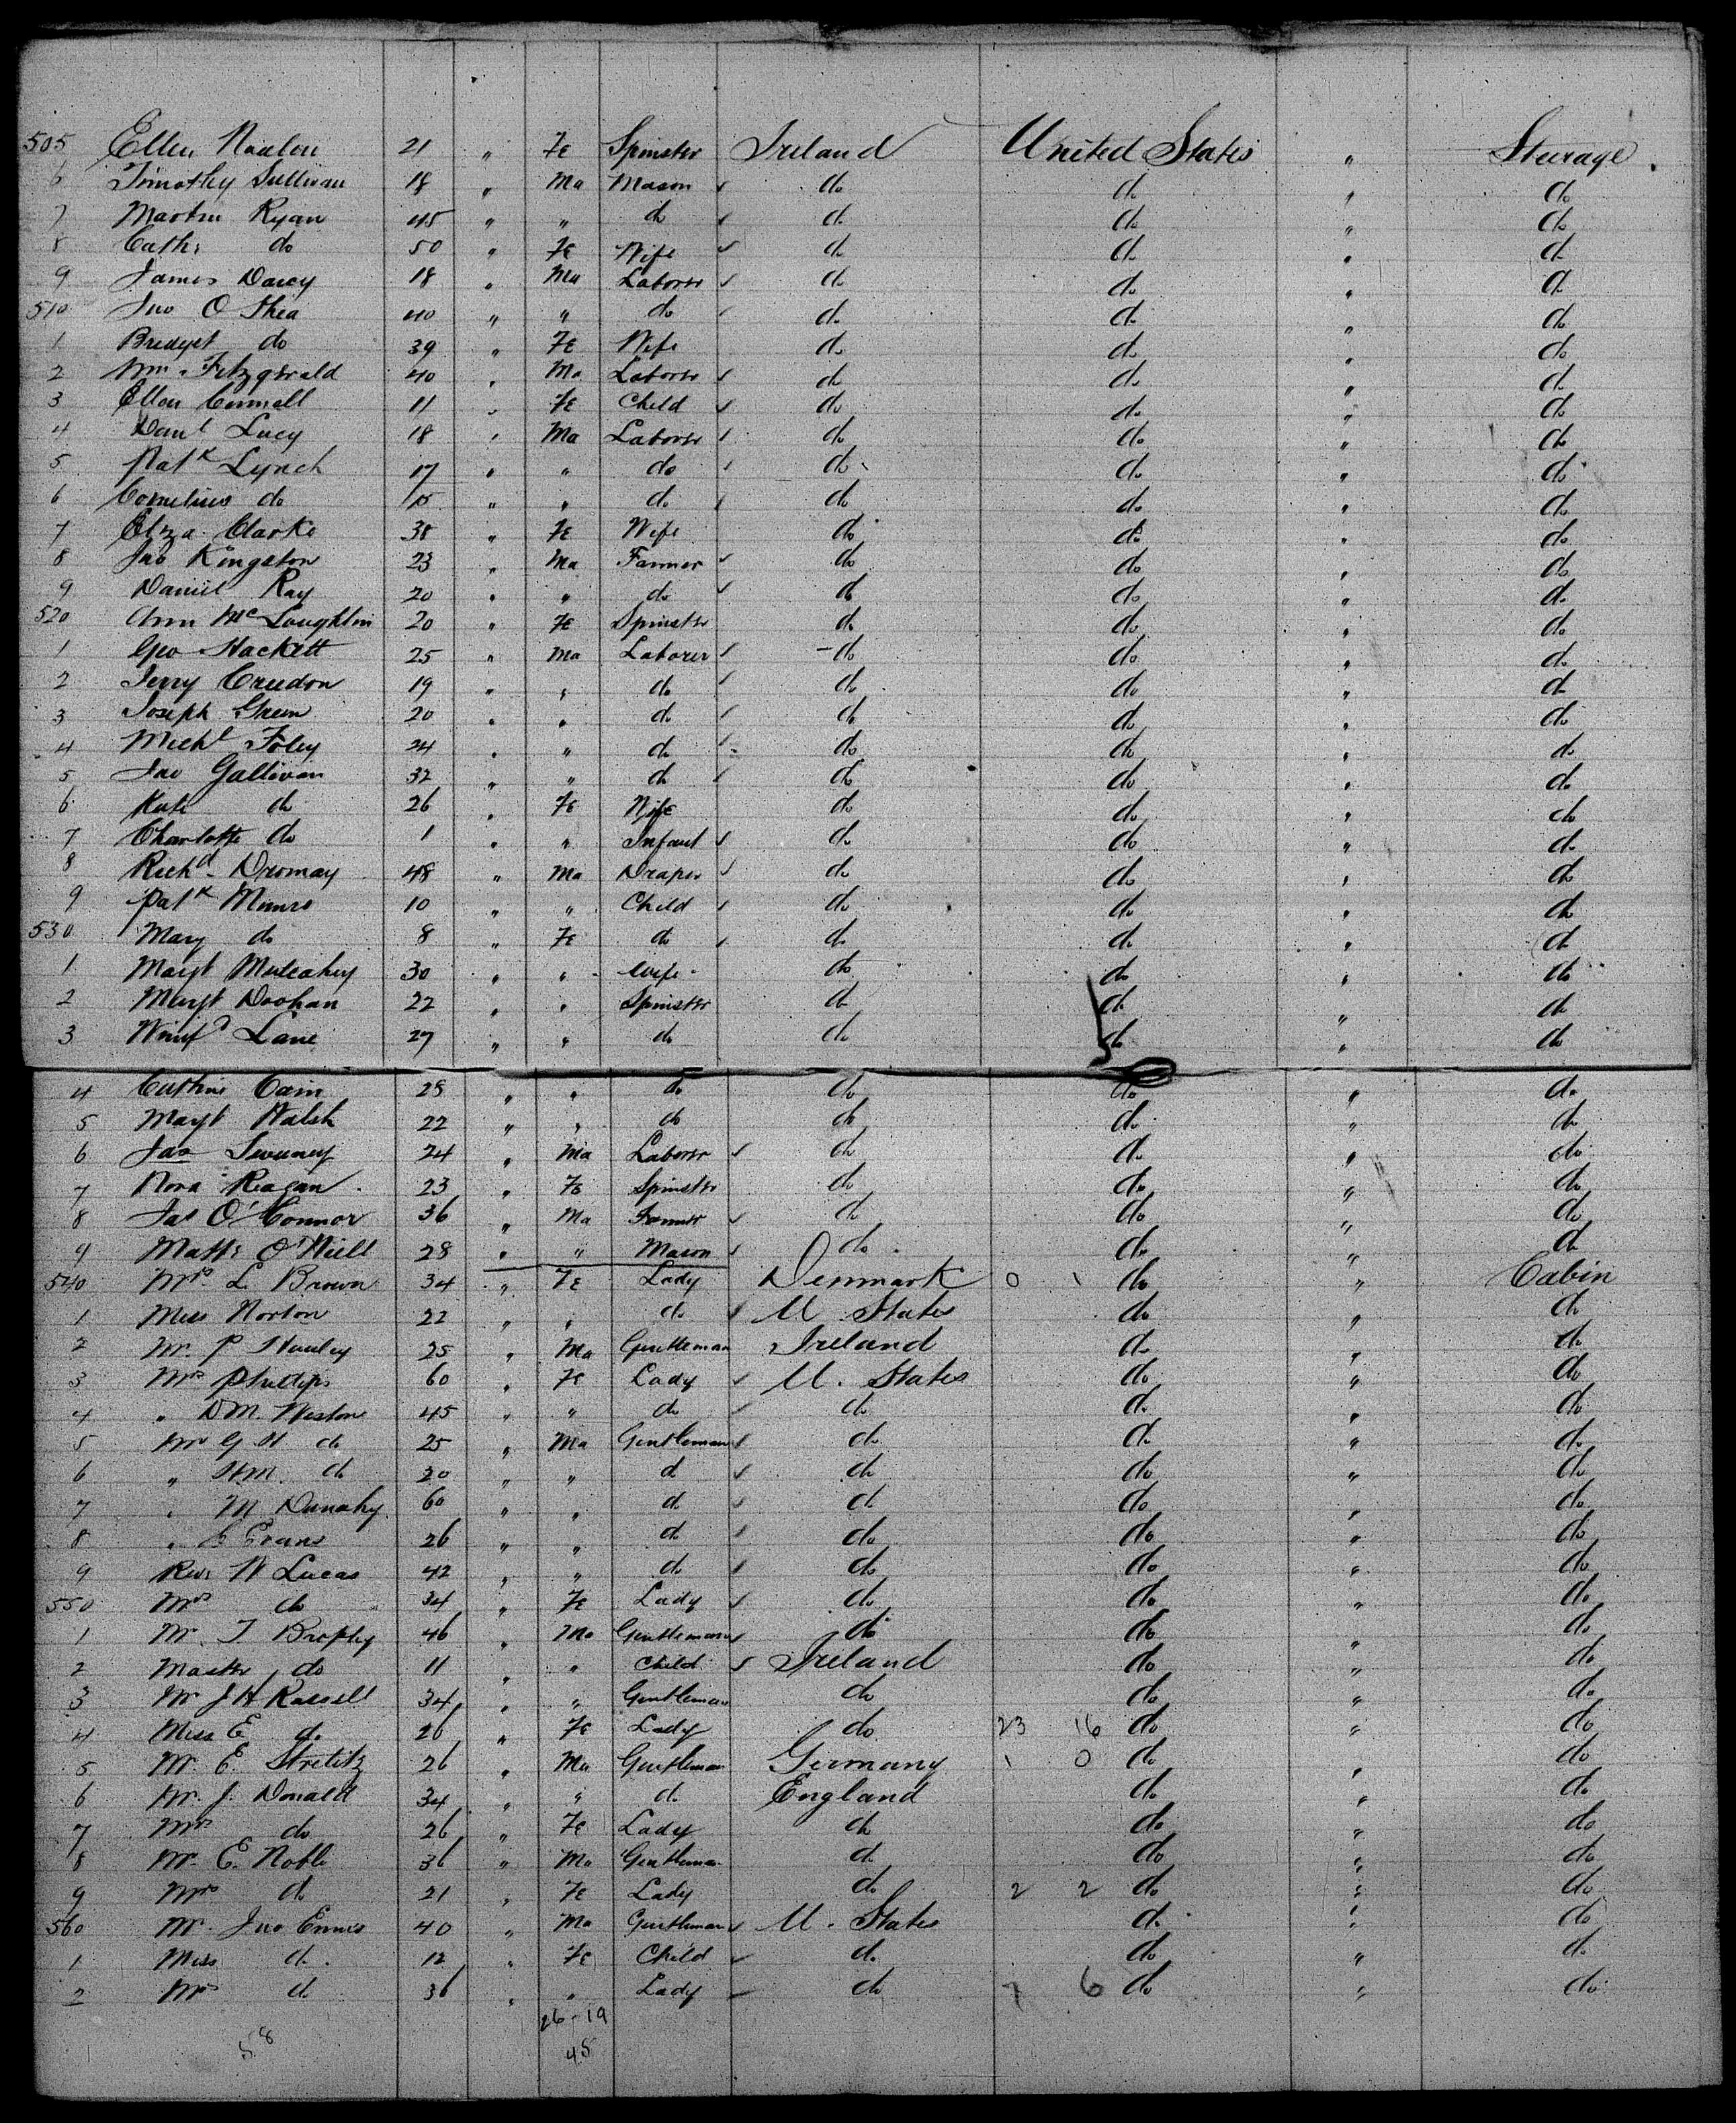 505 Ellen Nealon 21 " Fe Spinster Ireland United States " Steerage
6 Timothy Sullivan 18 " Ma Mason do do " do
7 Martin Ryan 45 " " do do do " do
8 Cath: do 50 " Fe Wife do do " do
9 James Darcy 18 " Ma Laborer do do " do
510 Jno O Shea 40 " " do do do " do
1 Bridget do 39 " Fe Wife do do " do
2 Wm Fitzgerald 40 " Ma Laborer do do " do
3 Ellen Connell 11 " Fe Child do do " do
4 Danl Lucy 18 " Ma Laborer do do " do
5 Patk Lynch 17 " " do do do " do
6 Cornelius do 15 " " do do do " do
7 Eliza Clarke 38 " Fe Wife do do " do
8 Jno Kingston 23 " Ma Farmer do do " do
9 Daniel Ray 20 " " do do do " do
520 Ann McLoughlin 20 " Fe Spinster do do " do
1 Geo Hackett 25 " Ma Laborer do do " do
2 Jerry Creedon 19 " " do do do " do
3 Joseph Green 20 " " do do do " do
4 Michl Foley 24 " " do do do " do
5 Jno Gallivan 32 " " do do do " do
6 Kate do 26 " Fe Wife do do " do
7 Charlotte do 1 " " Infant do do " do
8 Richd Dromay 48 " Ma Draper do do " do
9 Patk Munro 10 " " Child do do " do
530 Mary do 8 " Fe do do do " do
1 Margt Mulcahy 30 " " Wife do do " do
2 Margt Doohan 22 " " Spinster do do " do
3 Winifd Lane 27 " " do do do " do
4 Cathne Cain 28 " " do do do " do
5 Margt Walsh 22 " " do do do " do
6 Jas Sweeney 24 " Ma Laborer do do " do
7 Nora Reagan 23 " Fe Spinster do do " do
8 Jas O'Connor 36 " Ma Farmer do do " do
9 Matt: O'Neill 28 " " Mason do do " do
540 Mrs L. Brown 34 " Fe Lady Denmark 0 1 do " Cabin
1 Miss Norton 22 " " do U States do " do
2 Mr. P Hanley 25 " Ma Gentleman Ireland do " do
3 Mrs Phillips 60 " Fe Lady U. States do " do
4 " D M. Weston 45 " " do do do " do
5 Mr G H do 25 " Ma Gentleman do do " do
6 " H M. do 20 " " do do do " do
7 " M Dunahy 60 " " do do do " do
8 " Evans 26 " " do do do " do
9 Rev: W Lucas 42 " " do do do " do
550 Mrs do 34 " Fe Lady do do " do
1 Mr. T. Brophy 46 " Ma Gentleman do do " do
2 Master do 11 " " Child Ireland do " do
3 Mr J H Russell 34 " " Gentleman do do " do
4 Miss E do 26 " Fe Lady do 23 16 do " do
5 Mr. E. Strelitz 26 " Ma Gentleman Germany 1 0 do " do
6 Mr. J. Donald 34 " " do England do " do
7 Mrs do 26 " Fe Lady do do " do
8 Mr. E. Noble 36 " Ma Gentleman do do " do
9 Mrs do 21 " Fe Lady do 2 2 do " do
560 Mr. Jno Ennis 40 " Ma Gentleman U. States do " do
1 Miss do 12 " Fe Child do do " do
2 Mrs do 36 " " Lady do 7 6 do " do
26-19
58 45